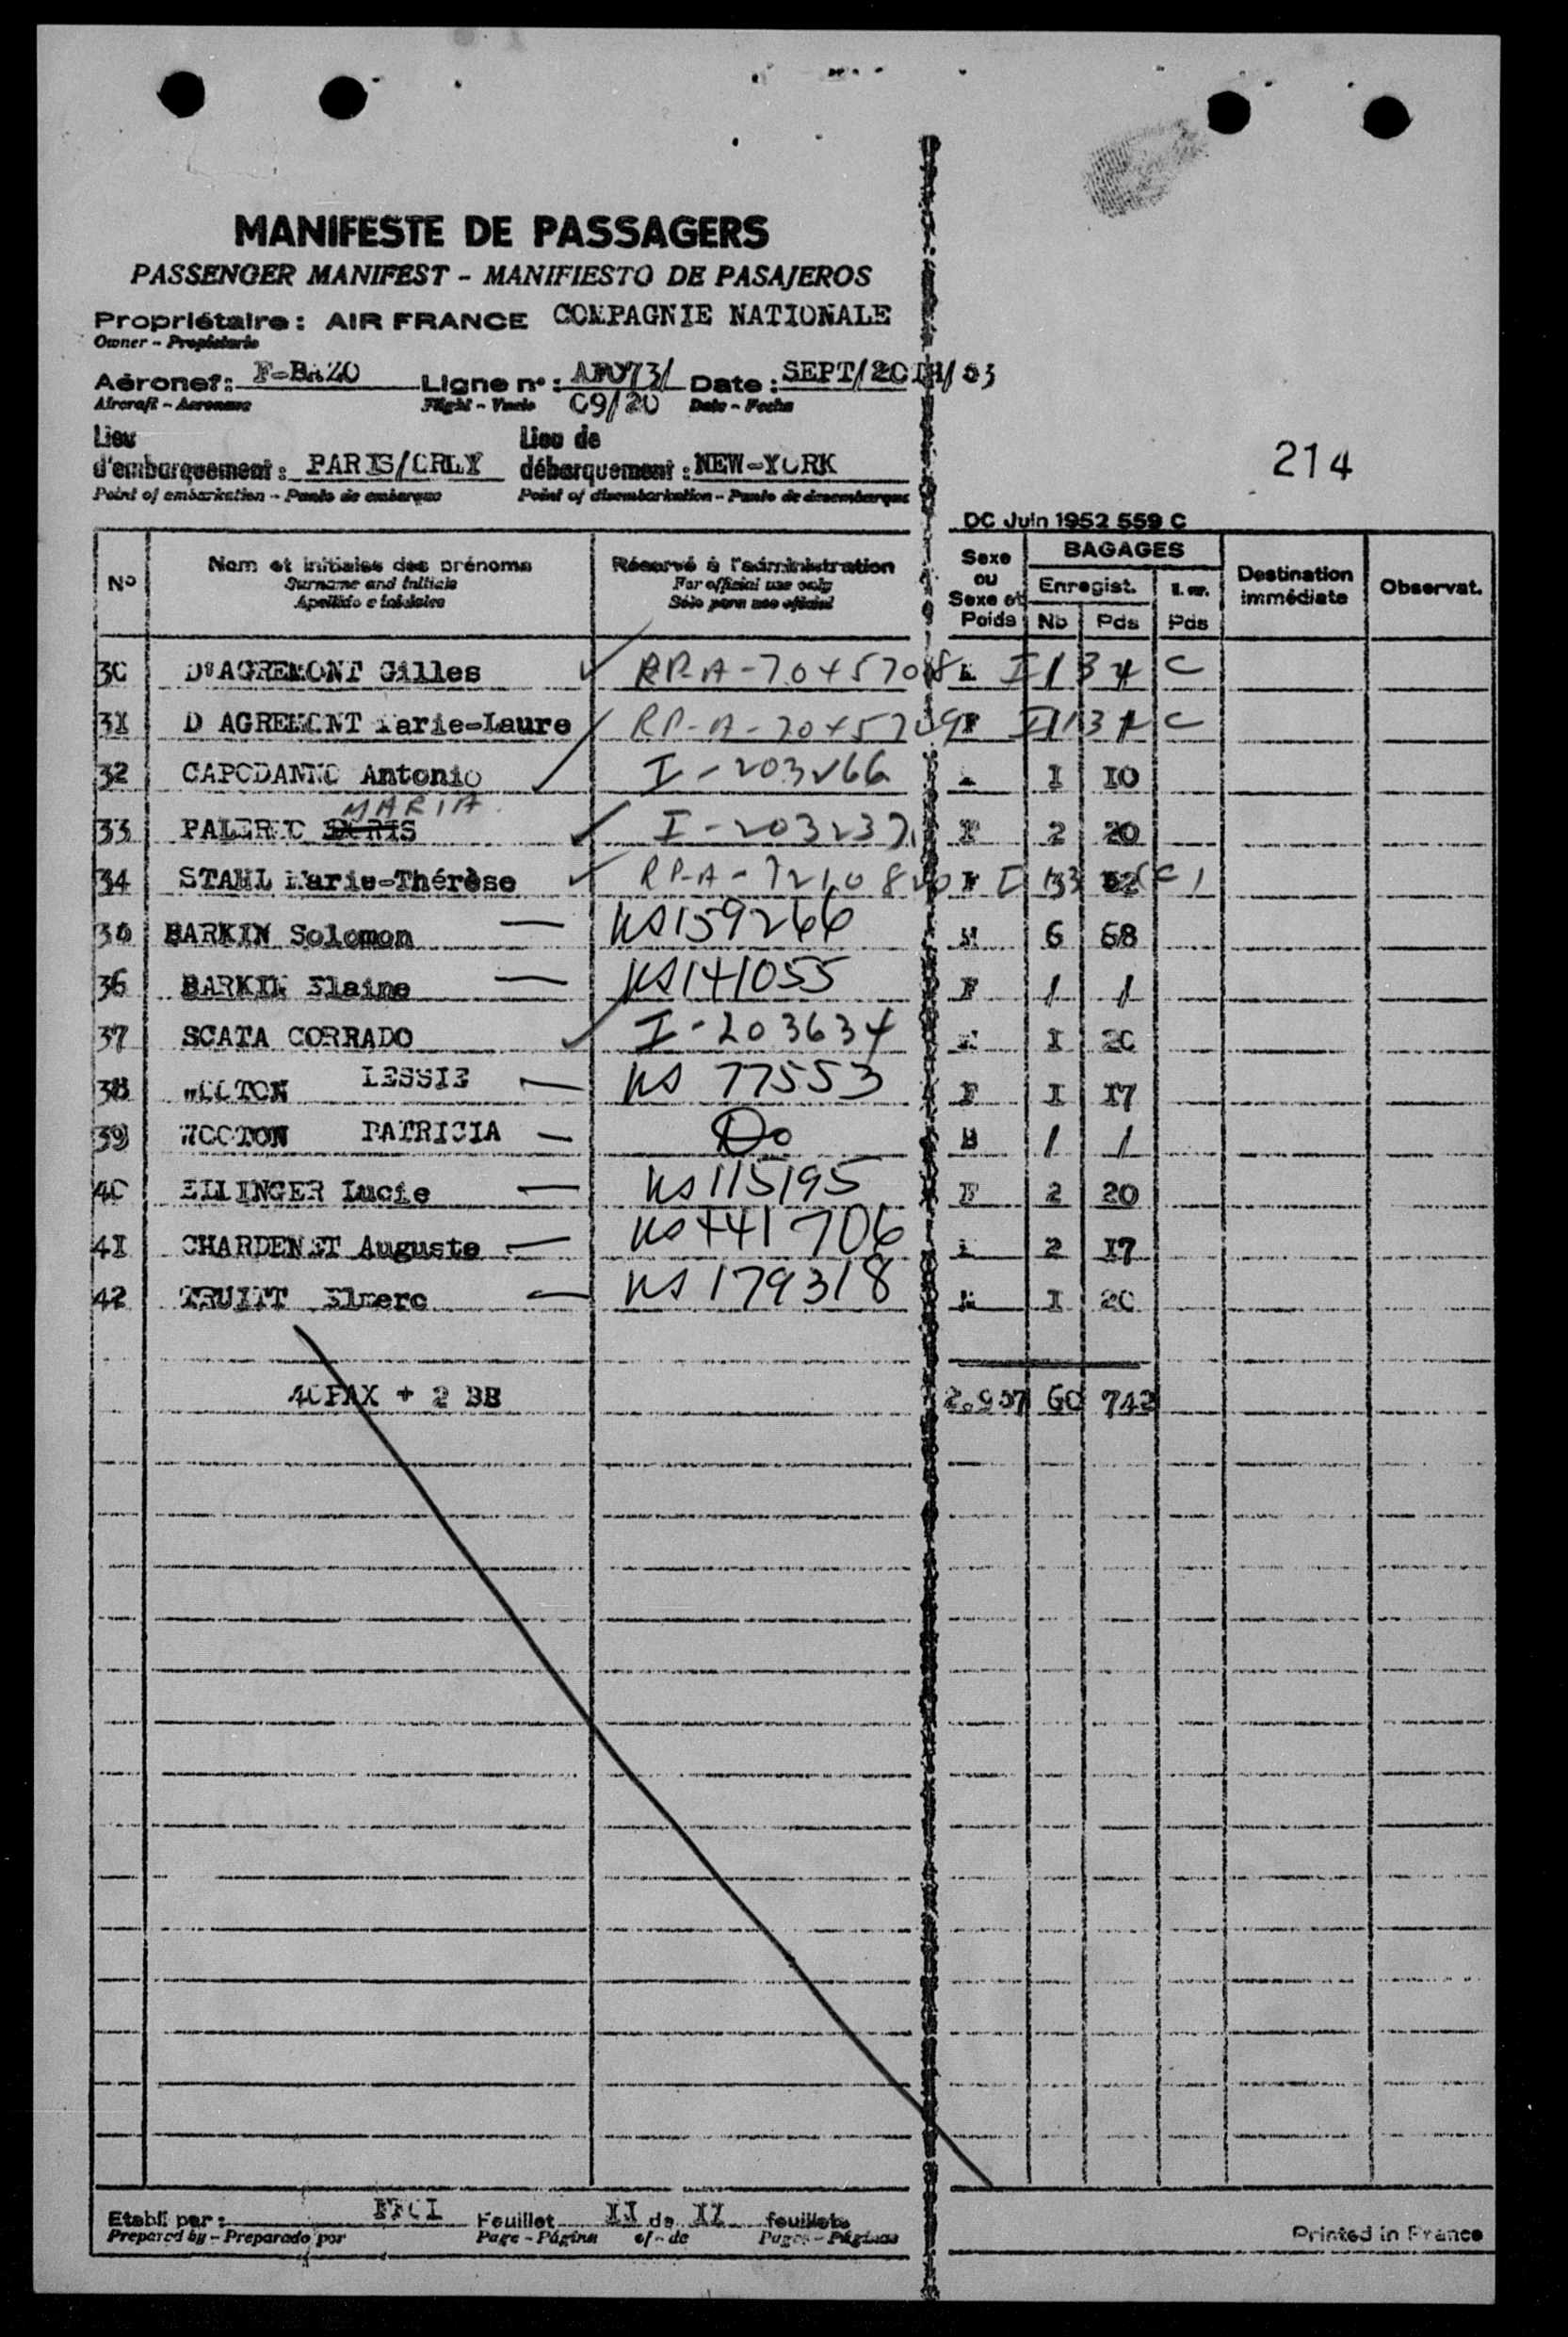 MANIFESTE DE PASSAGERS
PASSENGER MANIFEST - MANIFIESTO DE PASAJEROS
Propriétaire : AIR FRANCE COMPAGNIE NATIONALE
Owner - Propietario
Aéronef : F-BAZO Ligne n° : AF073/ Date : SEPT/20TH/53
Aircraft - Aeronave Flight - Vuelo 09/20 Date - Fecha
Lieu d'embarquement : PARIS/ORLY Lieu de débarquement : NEW-YORK
Point of embarkation - Punto de embarque Point of disembarkation - Punto de desembarque
214
DC Juin 1952 559 C
N° Nom et initiales des prénoms Réservé à l'administration Sexe ou Sexe et Poids BAGAGES Destination immédiate Observat.
Surname and initials For official use only Enregist.
Apellido e iniciales Sólo para uso oficial Nb Pds Pds
30 D'AGREMONT Gilles RP-A-7045708 I 1 34 C
31 D AGREMONT Marie-Laure RP-A-7045709 F I 1 C
32 CAPODANNO Antonio I-203266 I 10
MARIA
33 PALERMO I-203237 F 2 20
34 STAHL Marie-Thérèse RP-A- F I (C)
BARKIN Solomon US159266 M 6 68
36 BARKIN Elaine US141055 F / /
37 SCATA CORRADO I-203634 I 20
38 WOOTON LESSIE US 77553 F I 17
39 WOOTON PATRICIA Do B / /
40 ELLINGER Lucie US115195 F 2 20
41 CHARDENET Auguste 2 17
42 TRUITT US 179318 M I 20
40PAX + 2 BB 60 742
Etabli par : Feuillet II de II feuillets
Prepared by - Preparado por Page - Página of - de Pages - Páginas
Printed in France